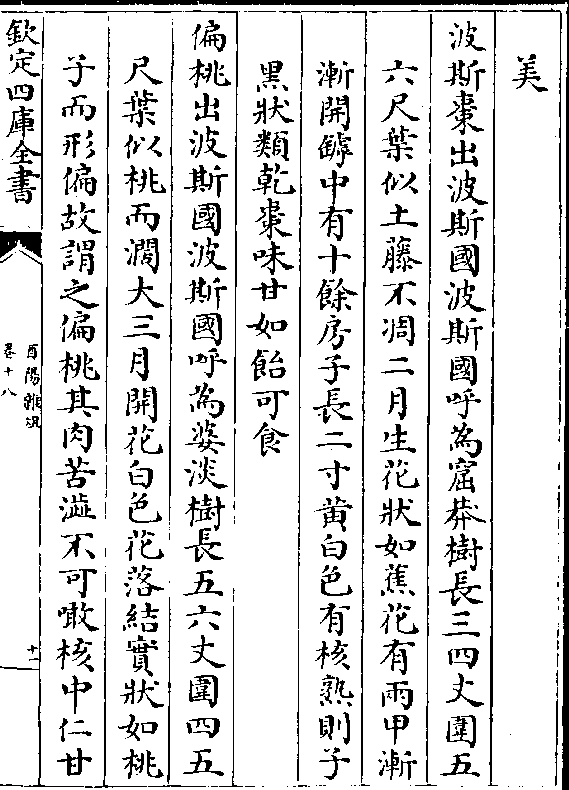 美
波斯棗出波斯國波斯國呼為窟莽樹長三四丈圍五
六尺葉似土藤不凋二月生花狀如蕉花有兩甲漸
漸開罅中有十餘房子長二寸黃白色有核熟則子
黑狀類乾棗味甘如飴可食
偏桃出波斯國波斯國呼為婆淡樹長五六丈圍四五
尺葉似桃而濶大三月開花白色花落結實狀如桃
子而形偏故謂之偏桃其肉苦澁不可噉核中仁甘
欽定四庫全書
酉陽雜俎
卷十八
十一